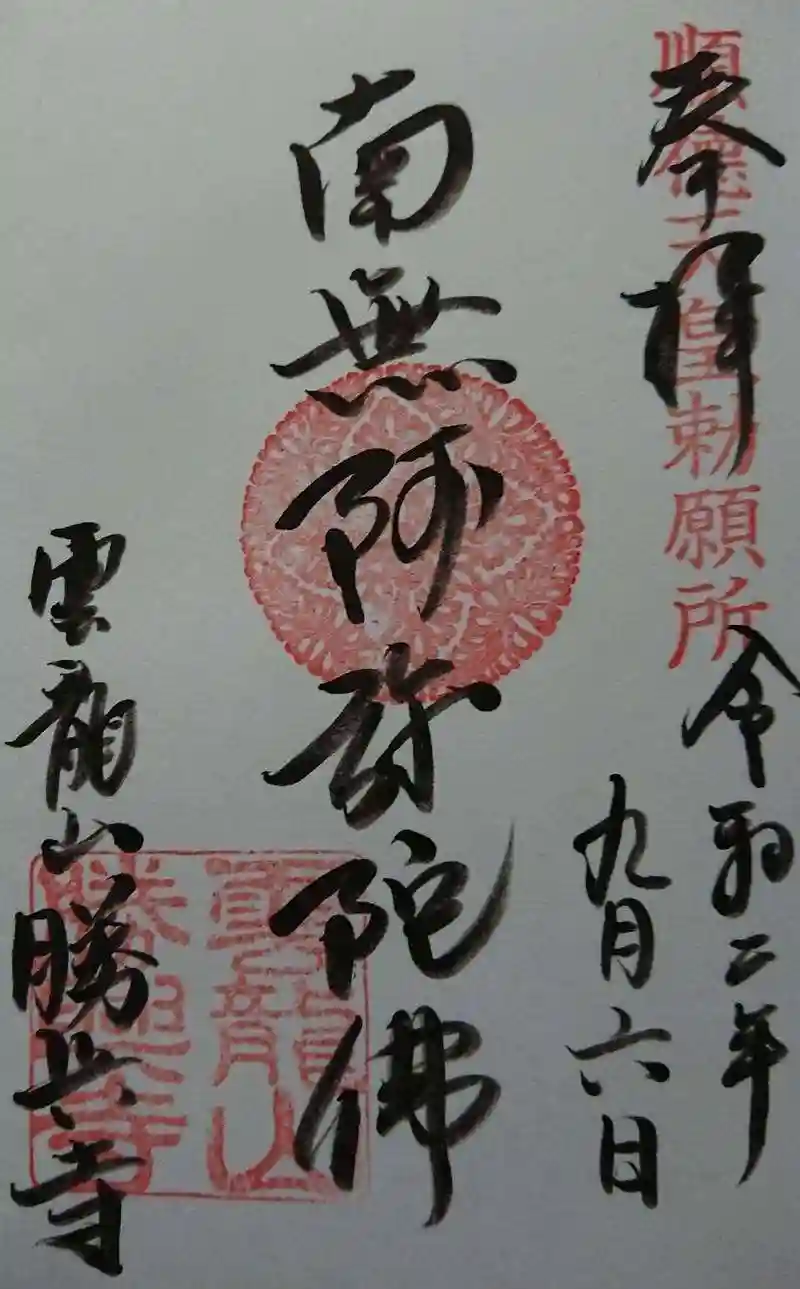 奉拝
順徳天皇勅願所
令和二年
九月六日
南無阿弥陀佛
雲龍山勝興寺
雲龍山
勝興寺